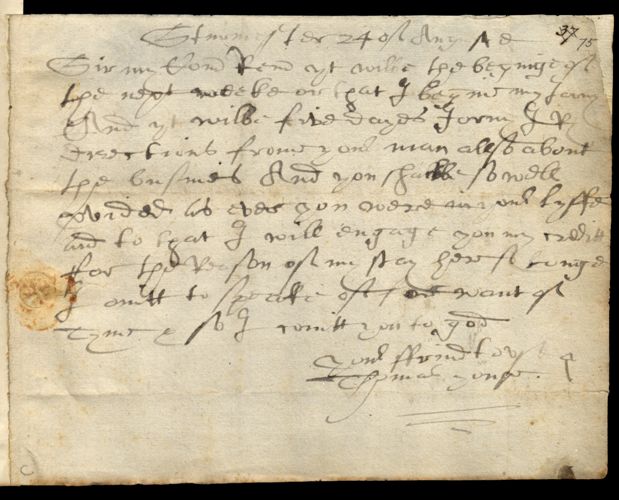 37 75
24 of August
Sir my Comd Remd yt wilbe the beginige of
the next weeke or that I begine my Jorny
And yt wilbe five dayes Jorny I
directions frome your man allso about
the busines And you shalbe so well
pvided as ever you were in your lyffe
and to that I will engage you my creditt
for the Reason of my stay here so longe
I omitt to speake of for want of
tyme & so I comitt you to god
Your ffrind to
Thomas